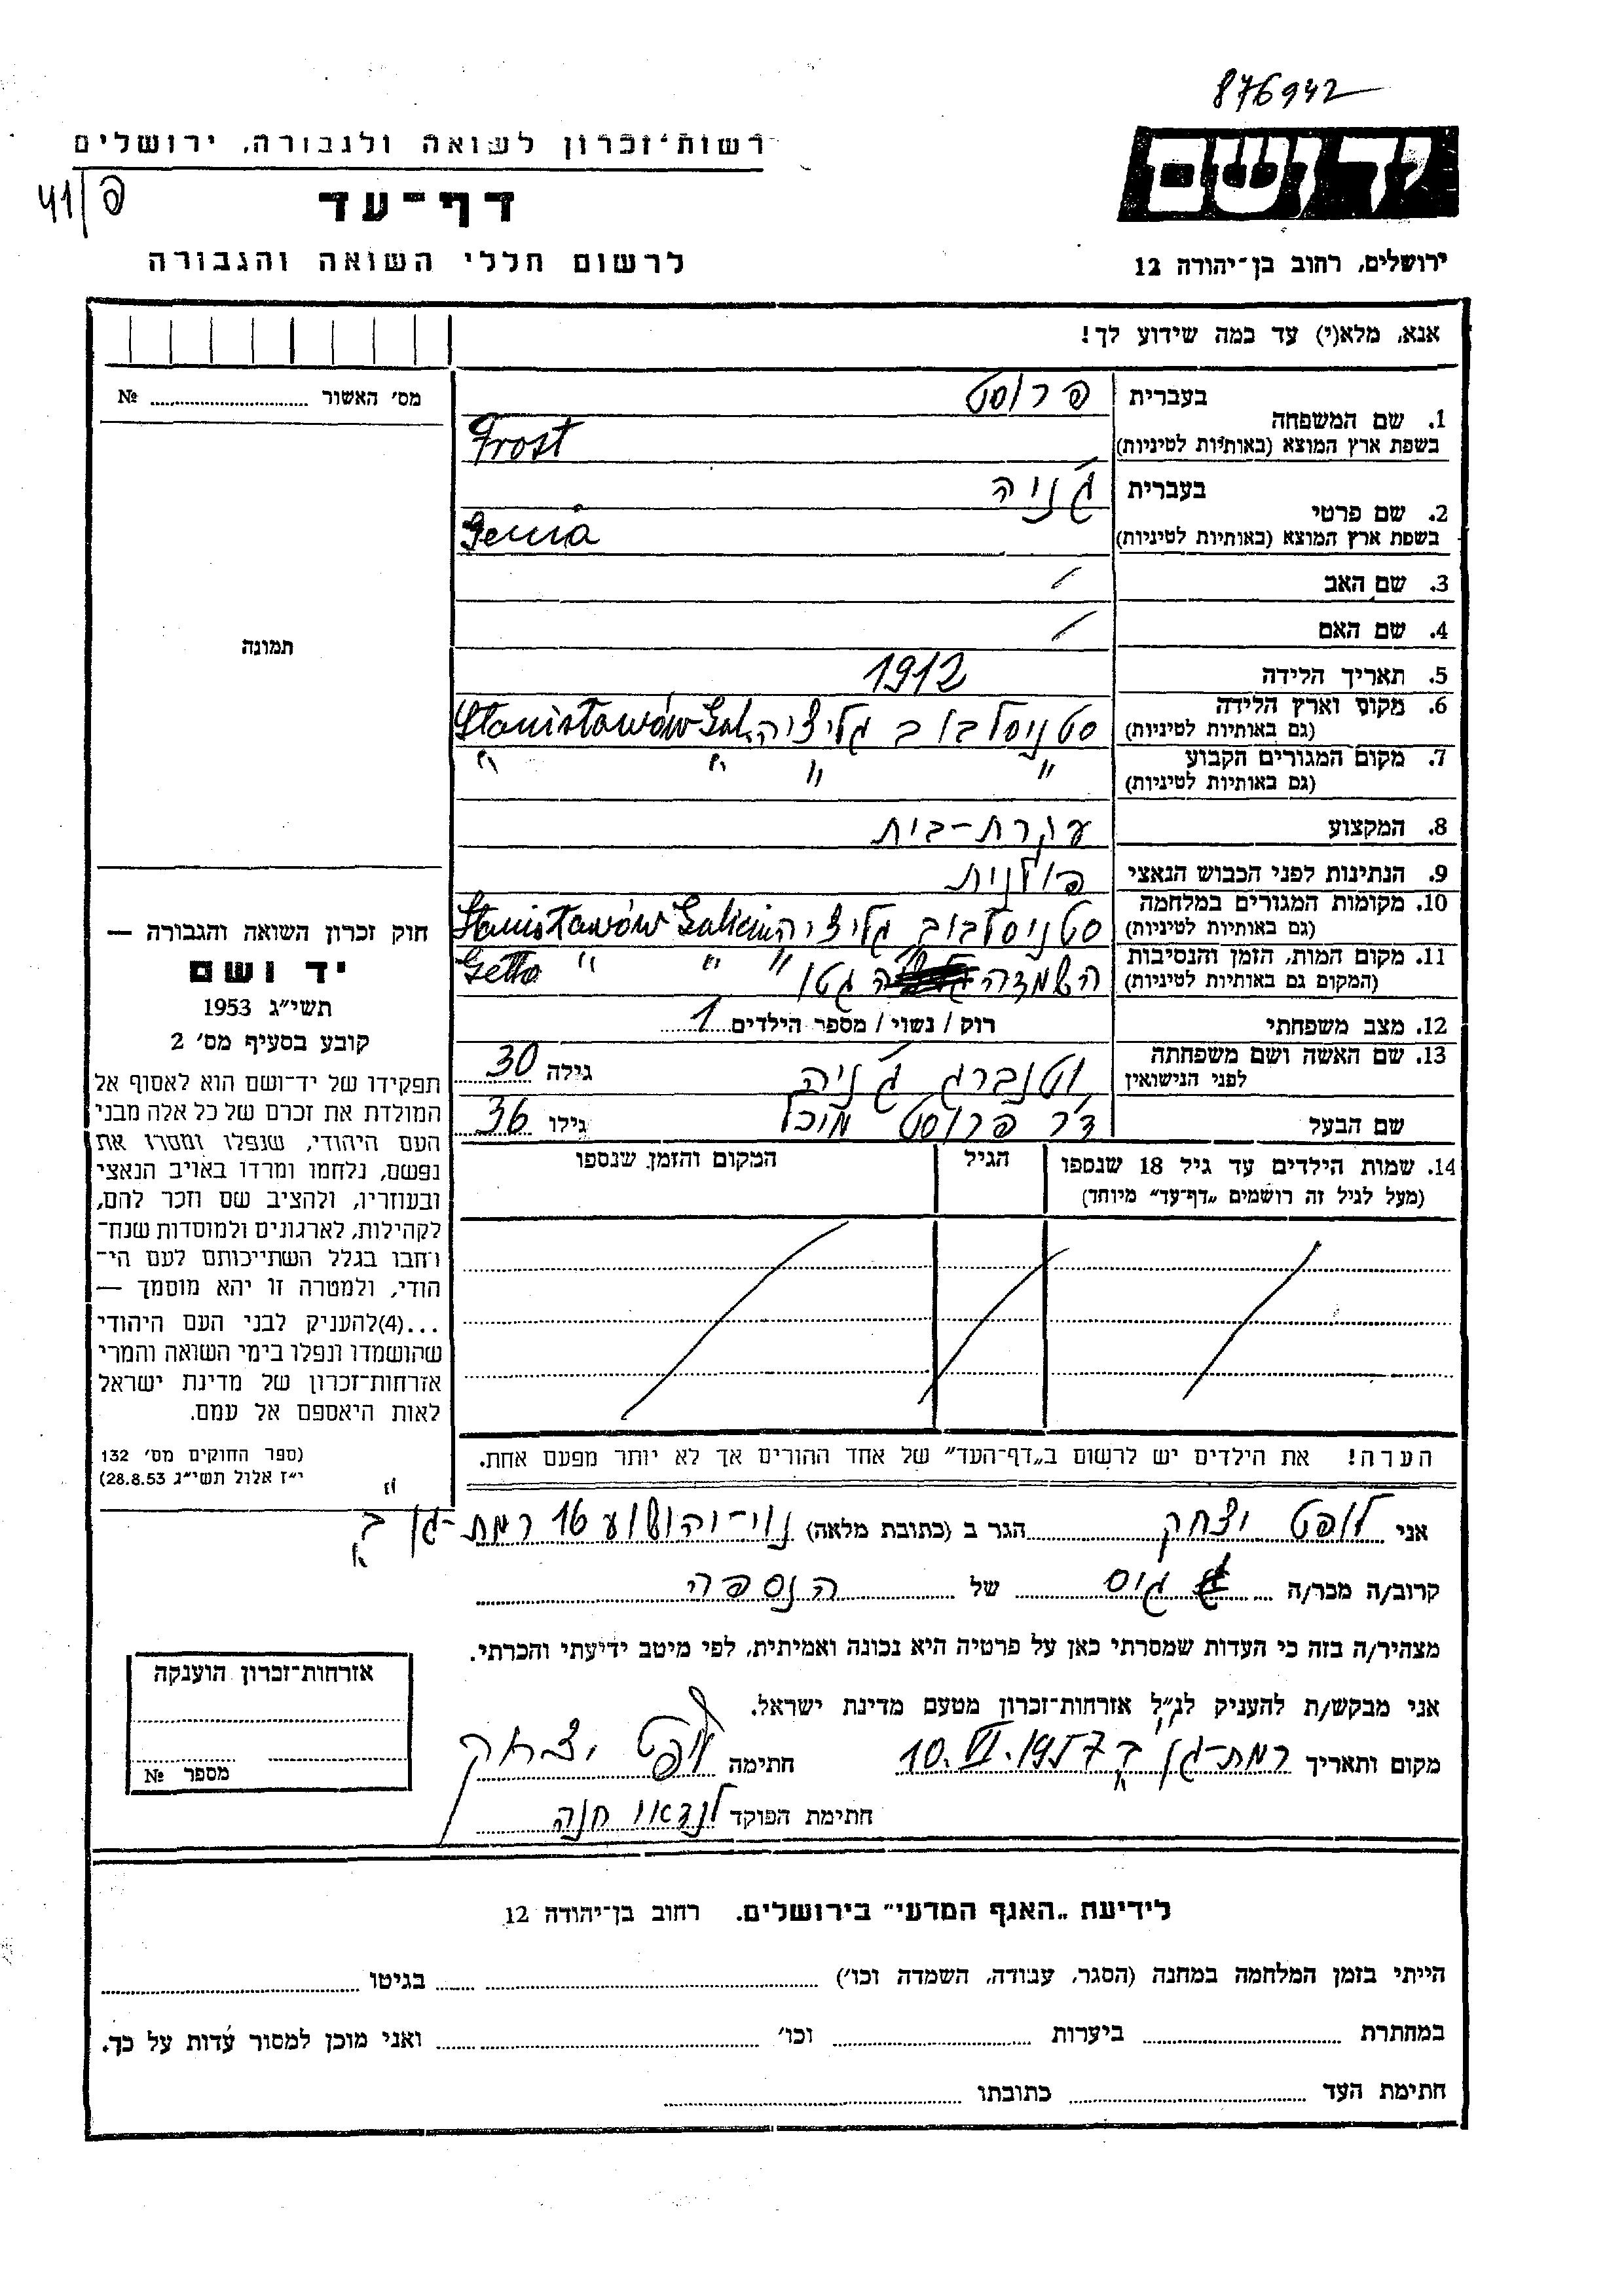 876942
רשות־זכרון לשואה ולגבורה, ירושלים
פ/41
דף־עד
לרשום חללי השואה והגבורה
יד ושם
ירושלים, רחוב בן־יהודה 12
אנא, מלא(י) עד כמה שידוע לך!
מס׳ האשור № 
1. שם המשפחה בעברית פרוסט
בשפת ארץ המוצא (באותיות לטיניות) Frost
2. שם פרטי בעברית ג׳ניה
בשפת ארץ המוצא (באותיות לטיניות) Genia
3. שם האב /
4. שם האם /
תמונה
5. תאריך הלידה 1912
6. מקום וארץ הלידה סטניסלבוב גליציה Stanisławów Gal.
(גם באותיות לטיניות)
7. מקום המגורים הקבוע " " " "
(גם באותיות לטיניות)
8. המקצוע עקרת-בית
9. הנתינות לפני הכבוש הנאצי פולנית
10. מקומות המגורים במלחמה סטניסלבוב גליציה Stanisławów Galicia
(גם באותיות לטיניות)
11. מקום המות, הזמן והנסיבות השמדה גטו " " " Getto
(המקום גם באותיות לטיניות)
12. מצב משפחתי רוק / נשוי / מספר הילדים 1
13. שם האשה ושם משפחתה לפני הנישואין וטנברג ג׳ניה גילה 30
שם הבעל ד״ר פרוסט מוכל גילו 36
14. שמות הילדים עד גיל 18 שנספו הגיל המקום והזמן שנספו
(מעל לגיל זה רושמים „דף־עד״ מיוחד)
הערה! את הילדים יש לרשום ב„דף־העד״ של אחד ההורים אך לא יותר מפעם אחת.
חוק זכרון השואה והגבורה —
יד ושם
תשי״ג 1953
קובע בסעיף מס׳ 2
תפקידו של יד־ושם הוא לאסוף אל
המולדת את זכרם של כל אלה מבני
העם היהודי, שנפלו ומסרו את
נפשם, נלחמו ומרדו באויב הנאצי
ובעוזריו, ולהציב שם וזכר להם,
לקהילות, לארגונים ולמוסדות שנח־
רבו בגלל השתייכותם לעם הי־
הודי, ולמטרה זו יהא מוסמך —
...(4) להעניק לבני העם היהודי
שהושמדו ונפלו בימי השואה והמרי
אזרחות־זכרון של מדינת ישראל
לאות היאספם אל עמם.
(ספר החוקים מס׳ 132
י״ז אלול תשי״ג 28.8.53)
אני לופט יצחק הגר ב (כתובת מלאה) נוי-יהושוע 16 רמת-גן ב
קרוב/ה מכר/ה גיס של הנספה
מצהיר/ה בזה כי העדות שמסרתי כאן על פרטיה היא נכונה ואמיתית, לפי מיטב ידיעתי והכרתי.
אני מבקש/ת להעניק לנ״ל אזרחות־זכרון מטעם מדינת ישראל.
מקום ותאריך רמת-גן ב 10.VI.1957 חתימה לופט יצחק
חתימת הפוקד לנדאו חנה
אזרחות־זכרון הוענקה
מספר №
לידיעת „האגף המדעי״ בירושלים. רחוב בן־יהודה 12
הייתי בזמן המלחמה במחנה (הסגר, עבודה, השמדה וכו׳) בגיטו
במחתרת ביערות וכו׳ ואני מוכן למסור עדות על כך.
חתימת העד כתובתו